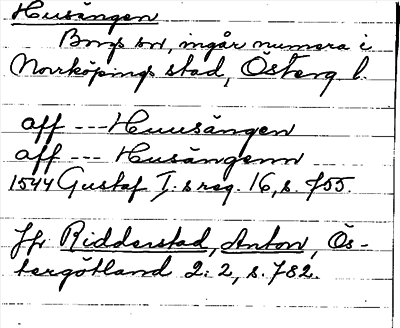 Husängen
Borgs sn, ingår numera i
Norrköpings stad, Österg l.
aff --- Huusängen
aff --- Husängenn
1544 Gustaf I:s reg. 16, s. 755.
Jfr Ridderstad, Anton, Ös-
tergötland 2:2, s. 782.